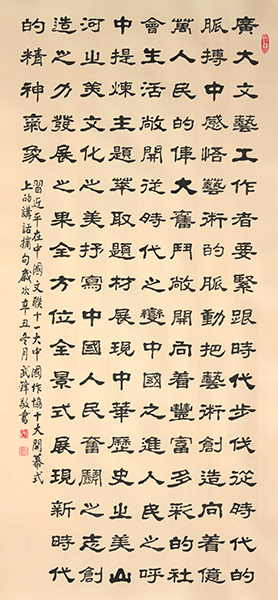 廣大文藝工作者要緊跟時代步伐從時代的
脈搏中感悟藝術的脈動把藝術創造向着億
萬人民的偉大奮鬥敞開向着豐富多彩的社
會生活敞開從時代之變中國之進人民之呼
中提煉主題萃取題材展現中華歷史之美山
河之美文化之美抒寫中國人民奮鬭之志創
造之力發展之果全方位全景式展現新時代
的精神氣象
習近平在中國文聯十一大中國作協十大開幕式
上的講話摘句歲次辛丑冬月武鋒敬書